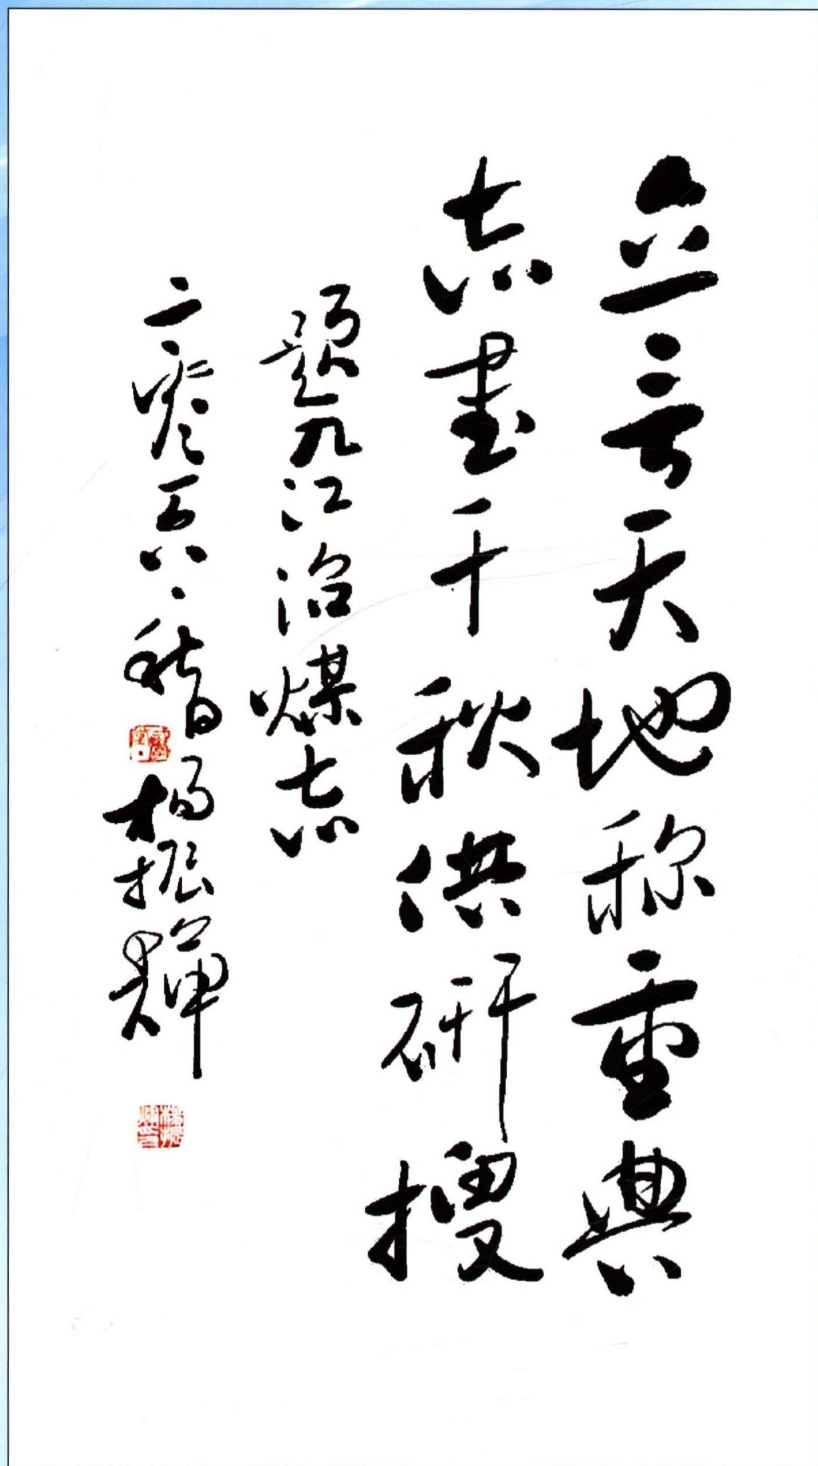 立言天地称重典
志書千秋供研搜
题九江冶煤志
二零 杨振辉